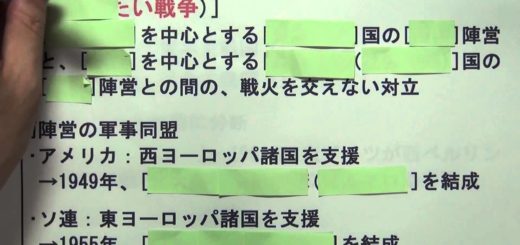 たい戦争)]
]を中心とする[ ]国の[ ]陣営
と、[ ]を中心とする[ ]([ ]国の
[ ]陣営との間の、戦火を交えない対立
]陣営の軍事同盟
・アメリカ：西ヨーロッパ諸国を支援
→1949年、[ ( )]を結成
・ソ連：東ヨーロッパ諸国を支援
→1955年、[ ]を結成